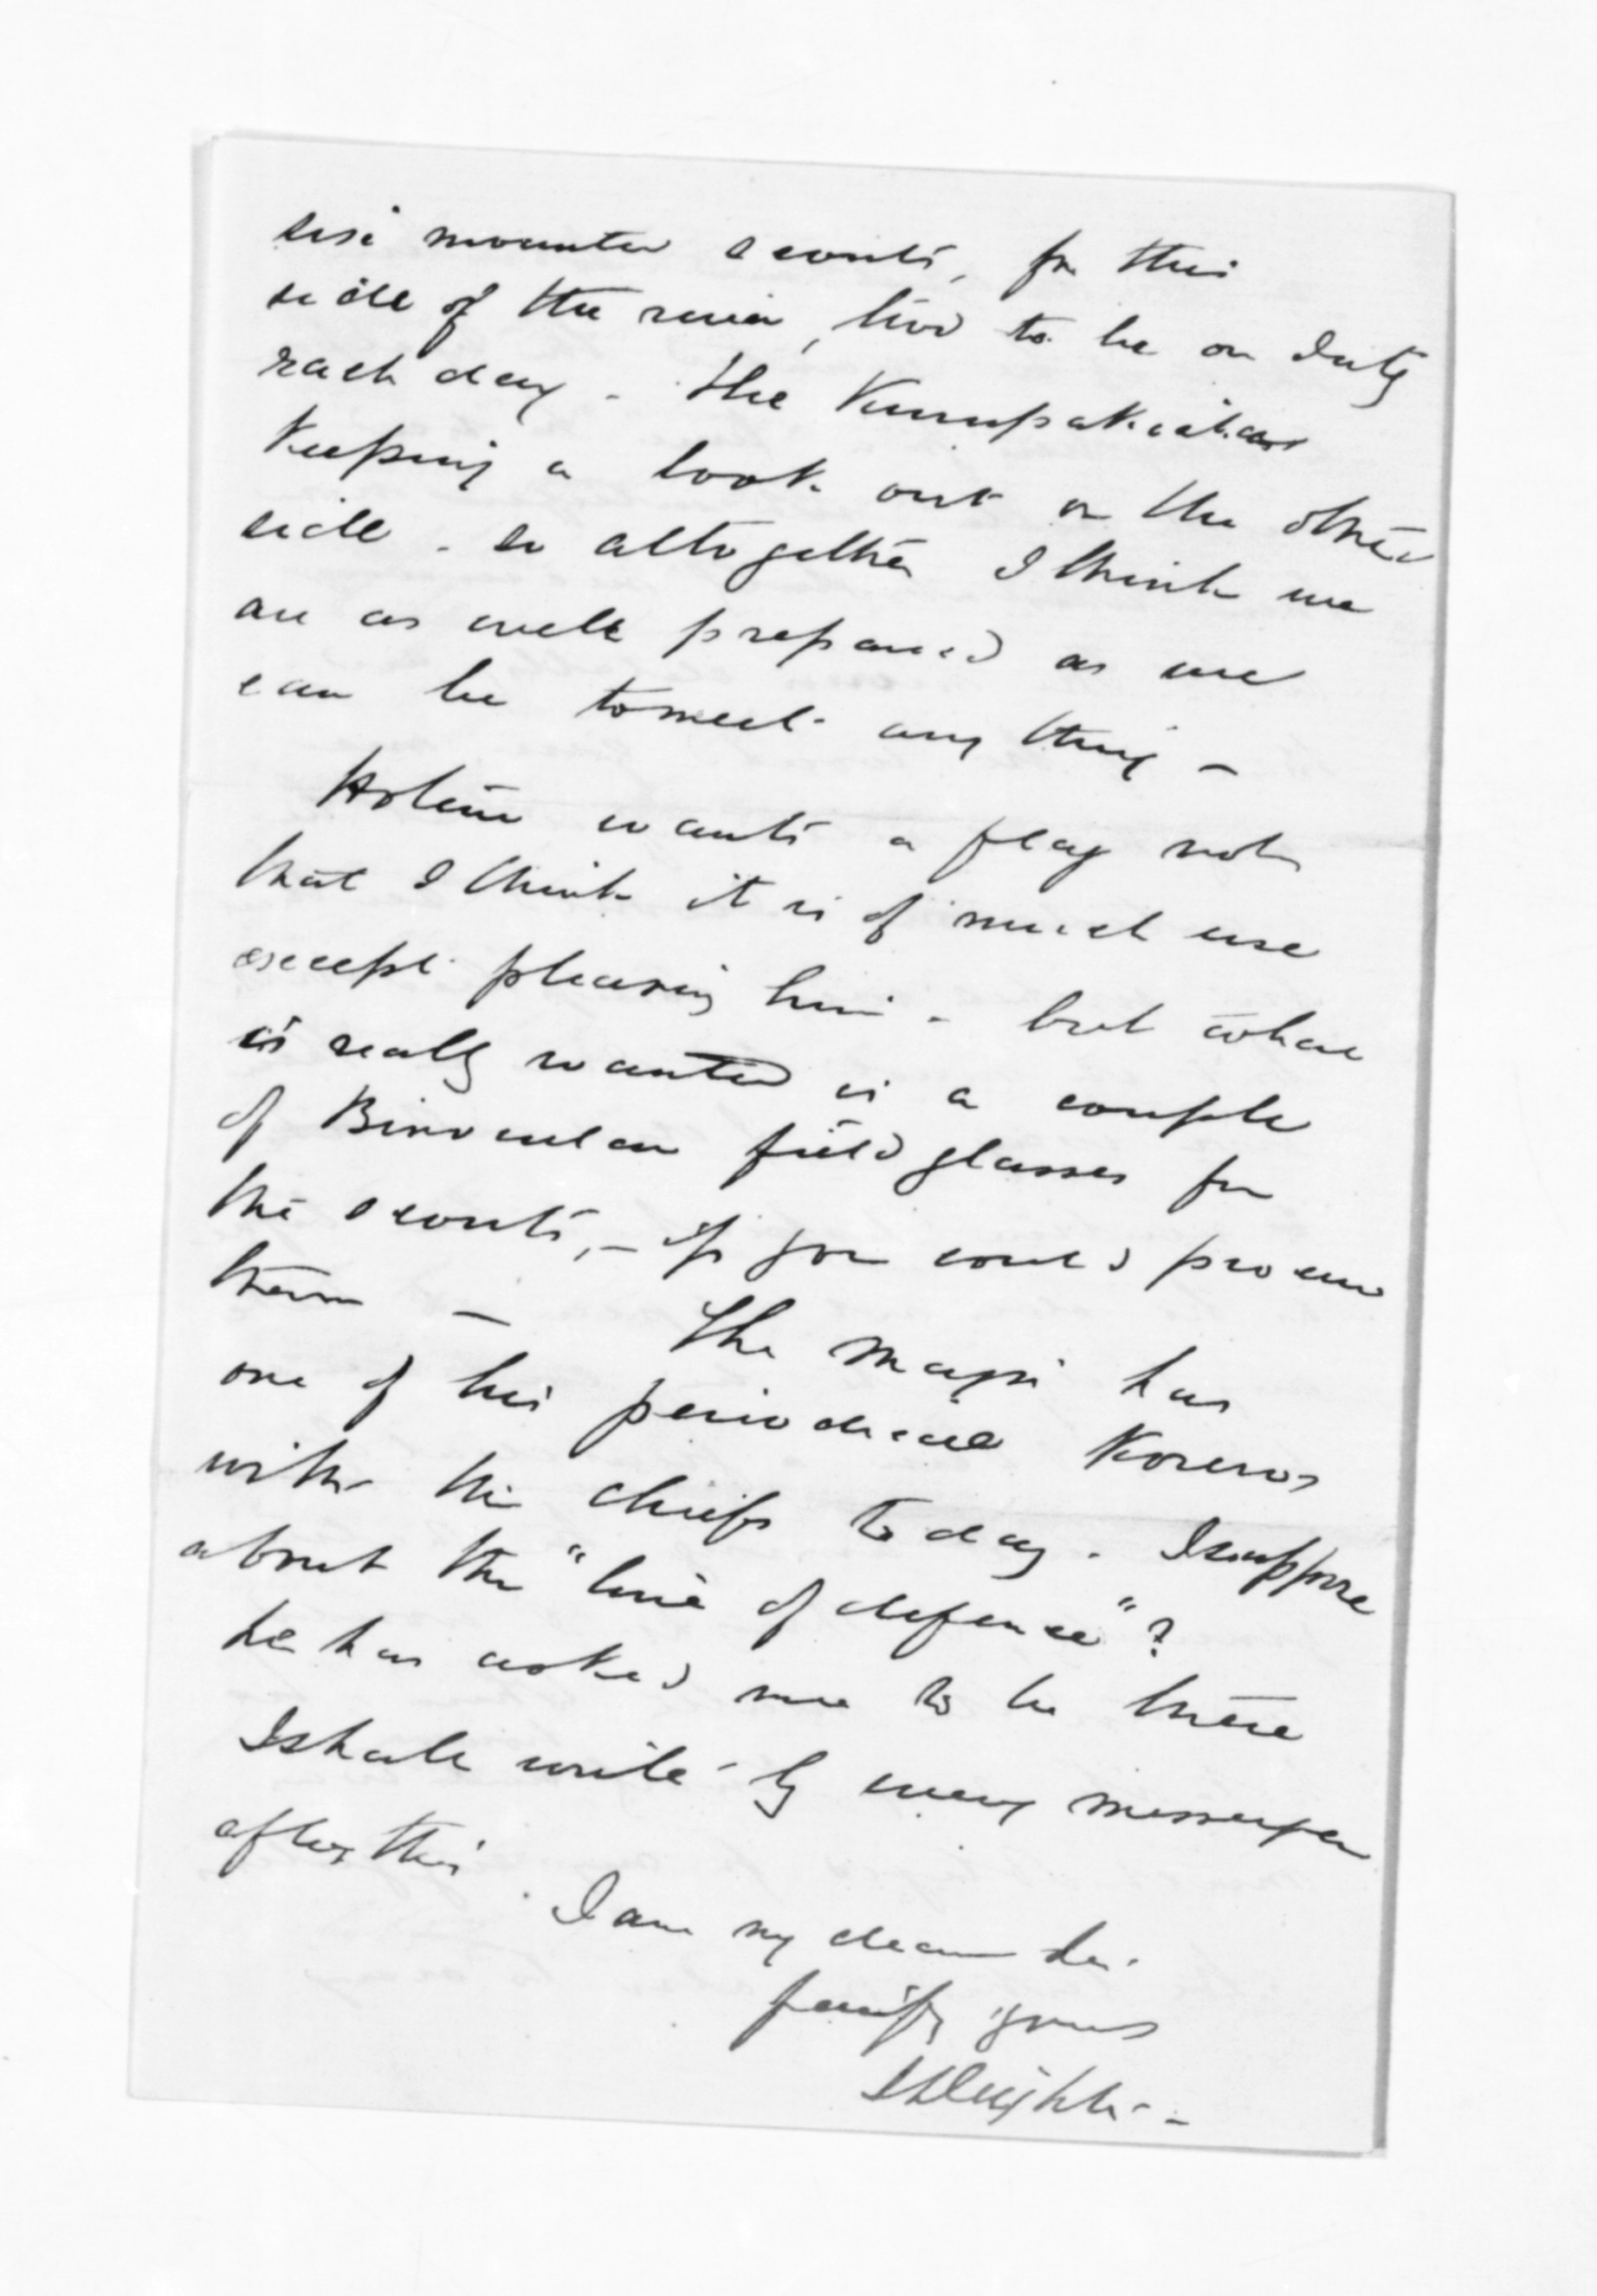 six mounted scouts, for this
side of the river, two to be on duty
each day. The
keeping a look out on the other
side. so altogether I think we
are as well prepared as we
can be to meet any thing —
wants a flag not
that I think it is of much use
except pleasing him. but what
is really wanted is a couple
of Binocular field glasses for
the scouts, — if you could procure
them — The Major has
one of his periodical Koreros
with the chiefs to day. I suppose
about the "line of defence"?
he has asked me to be there
I shall write by every messenger
after this. I am my dear Sir
faithy yours